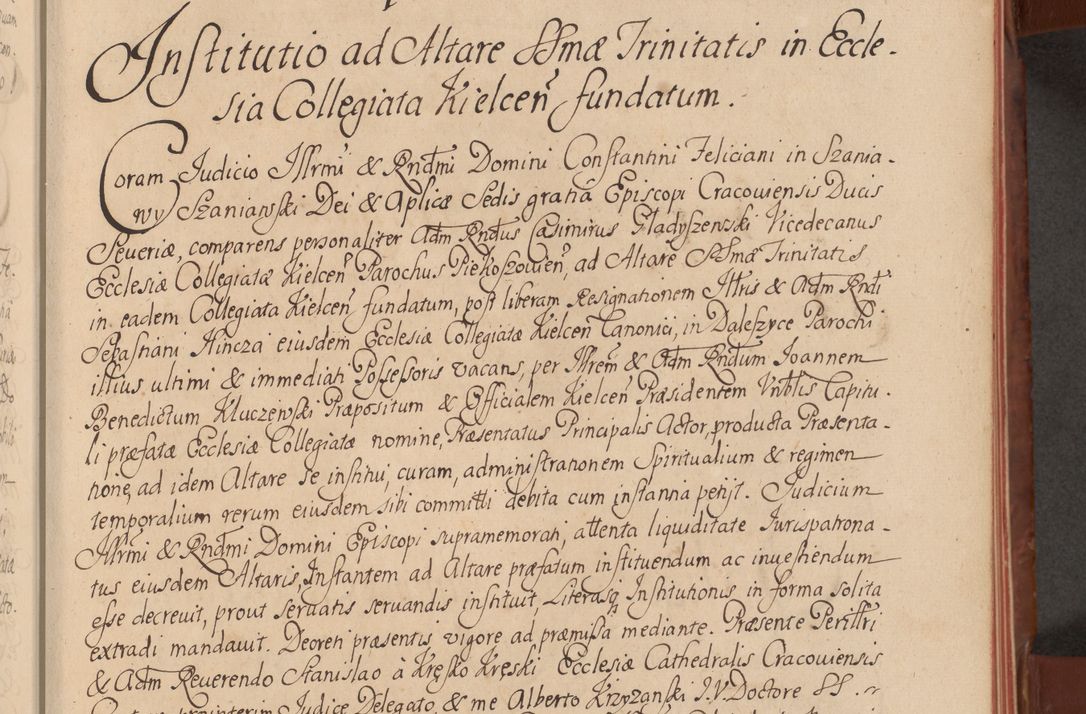 Institutio ad Altare SSmæ Trinitatis in Eccle-
sia Collegiata Kielceñ fundatum.
Coram Judicio Illrmi & Rndmi Domini Constantini Feliciani in Szania-
wy Szaniawski Dei & Aplicæ Sedis gratia Episcopi Cracoviensis Ducis
Severiæ, comparens personaliter Adm Rndus Casimirus Gładyszewski Vicedecanus
Ecclesiæ Collegiatæ Kielceñ Parochus Piekoszovieñ, ad Altare SSmæ Trinitatis
in eadem Collegiata Kielceñ fundatum, post liberam Resignationem Illris & Adm Rndi
Sebastiani Hincza eiusdem Ecclesiæ Collegiatæ Kielceñ Canonici, in Daleszyce Parochi
illius ultimi & immediati Possessoris vacans, per Illrem & Adm Rndum Joannem
Benedictum Kluczewski Præpositum & Officialem Kielceñ Præsidentem Vnblis Capitu-
li præfatæ Ecclesiæ Collegiatæ nomine, Præsentatus Principalis Actor, producta Præsenta-
tione, ad idem Altare se institui, curam, administrationem Spiritualium & regimen
temporalium rerum eiusdem sibi committi debita cum instantia petijt. Judicium
Illrmi & Rndmi Domini Episcopi supramemorati, attenta liquiditate Jurispatrona-
tus eiusdem Altaris, Instantem ad Altare præfatum instituendum ac investiendum
esse decrevit, prout servatis servandis instituit, Literasq Institutionis in forma solita
extradi mandavit. Decreti præsentis vigore ad præmissa mediante. Præsente Perillri
& Adm Reverendo Stanislao à Kręsko Kręski Ecclesiæ Cathedralis Cracoviensis
Judice Delegato, & me Alberto Krzyzanski J.V. Doctore SS.